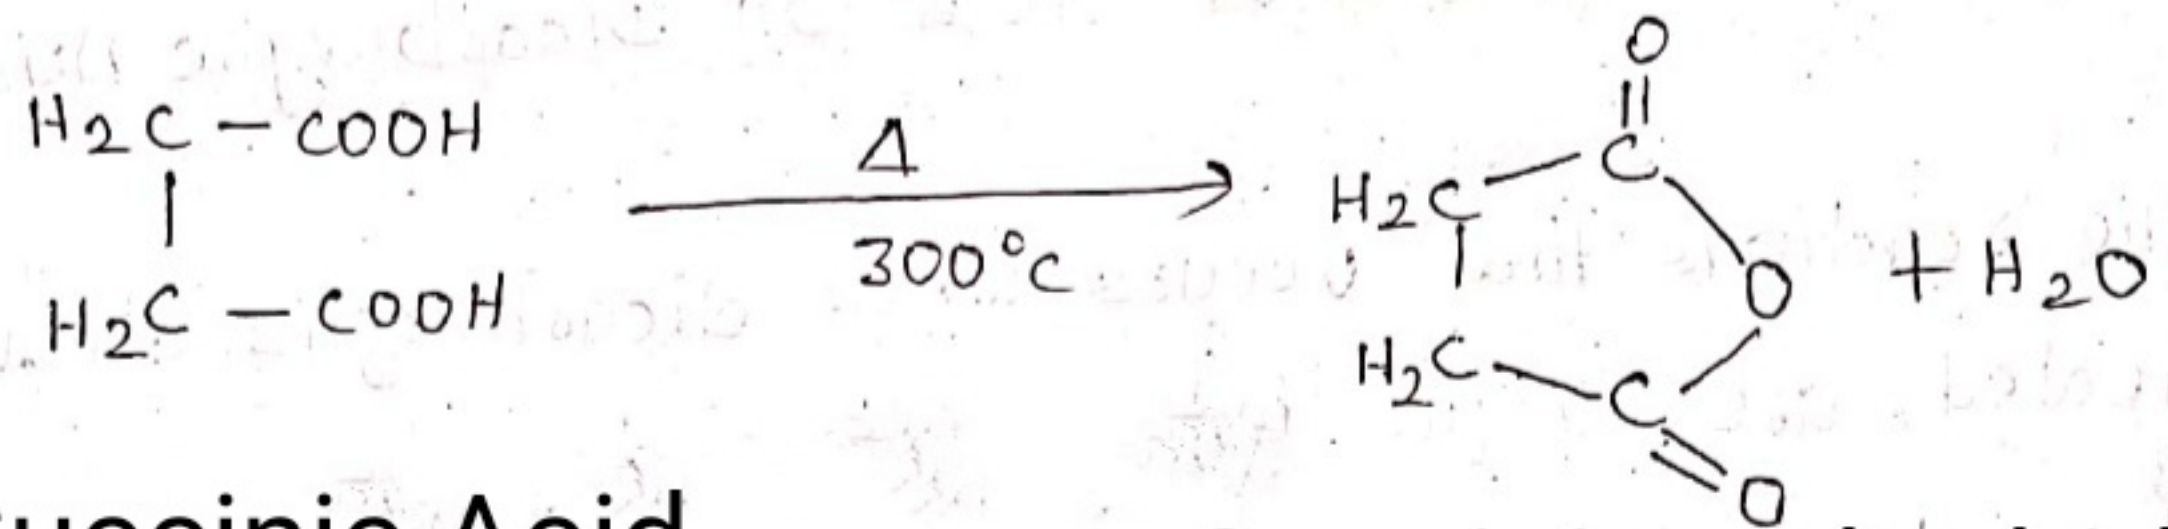 H2C - COOH
|
H2C - COOH
Δ
300°C
O
||
H2C - C
|
O
+ H2O
H2C - C
O
Acid